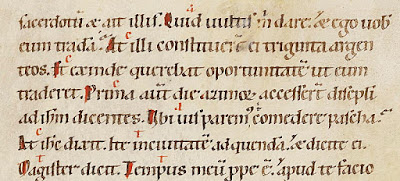 sacerdotū & ait illis. Quid vultis m̄ dare. & ego vob
eum tradā. At illi constituer̄ ei triginta argen
teos. Et exinde querebat oportunitatē ut eum
traderet. Prima aūt die azimor̄ accesser̄t discipli
ad ihm̄ dicentes. Ubi vis parem comedere pascha.
At ihc̄ dixit. Ite in civitatē ad quendā. & dicite ei.
Magister dicit. Tempus meū ppe ē. apud te facio